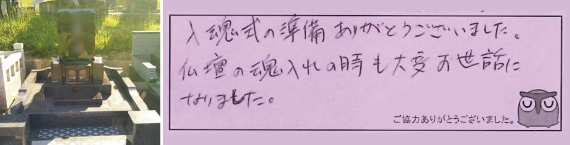 入魂式の準備ありがとうございました。
仏壇の魂入れの時も大変お世話に
なりました。
ご協力ありがとうございました。